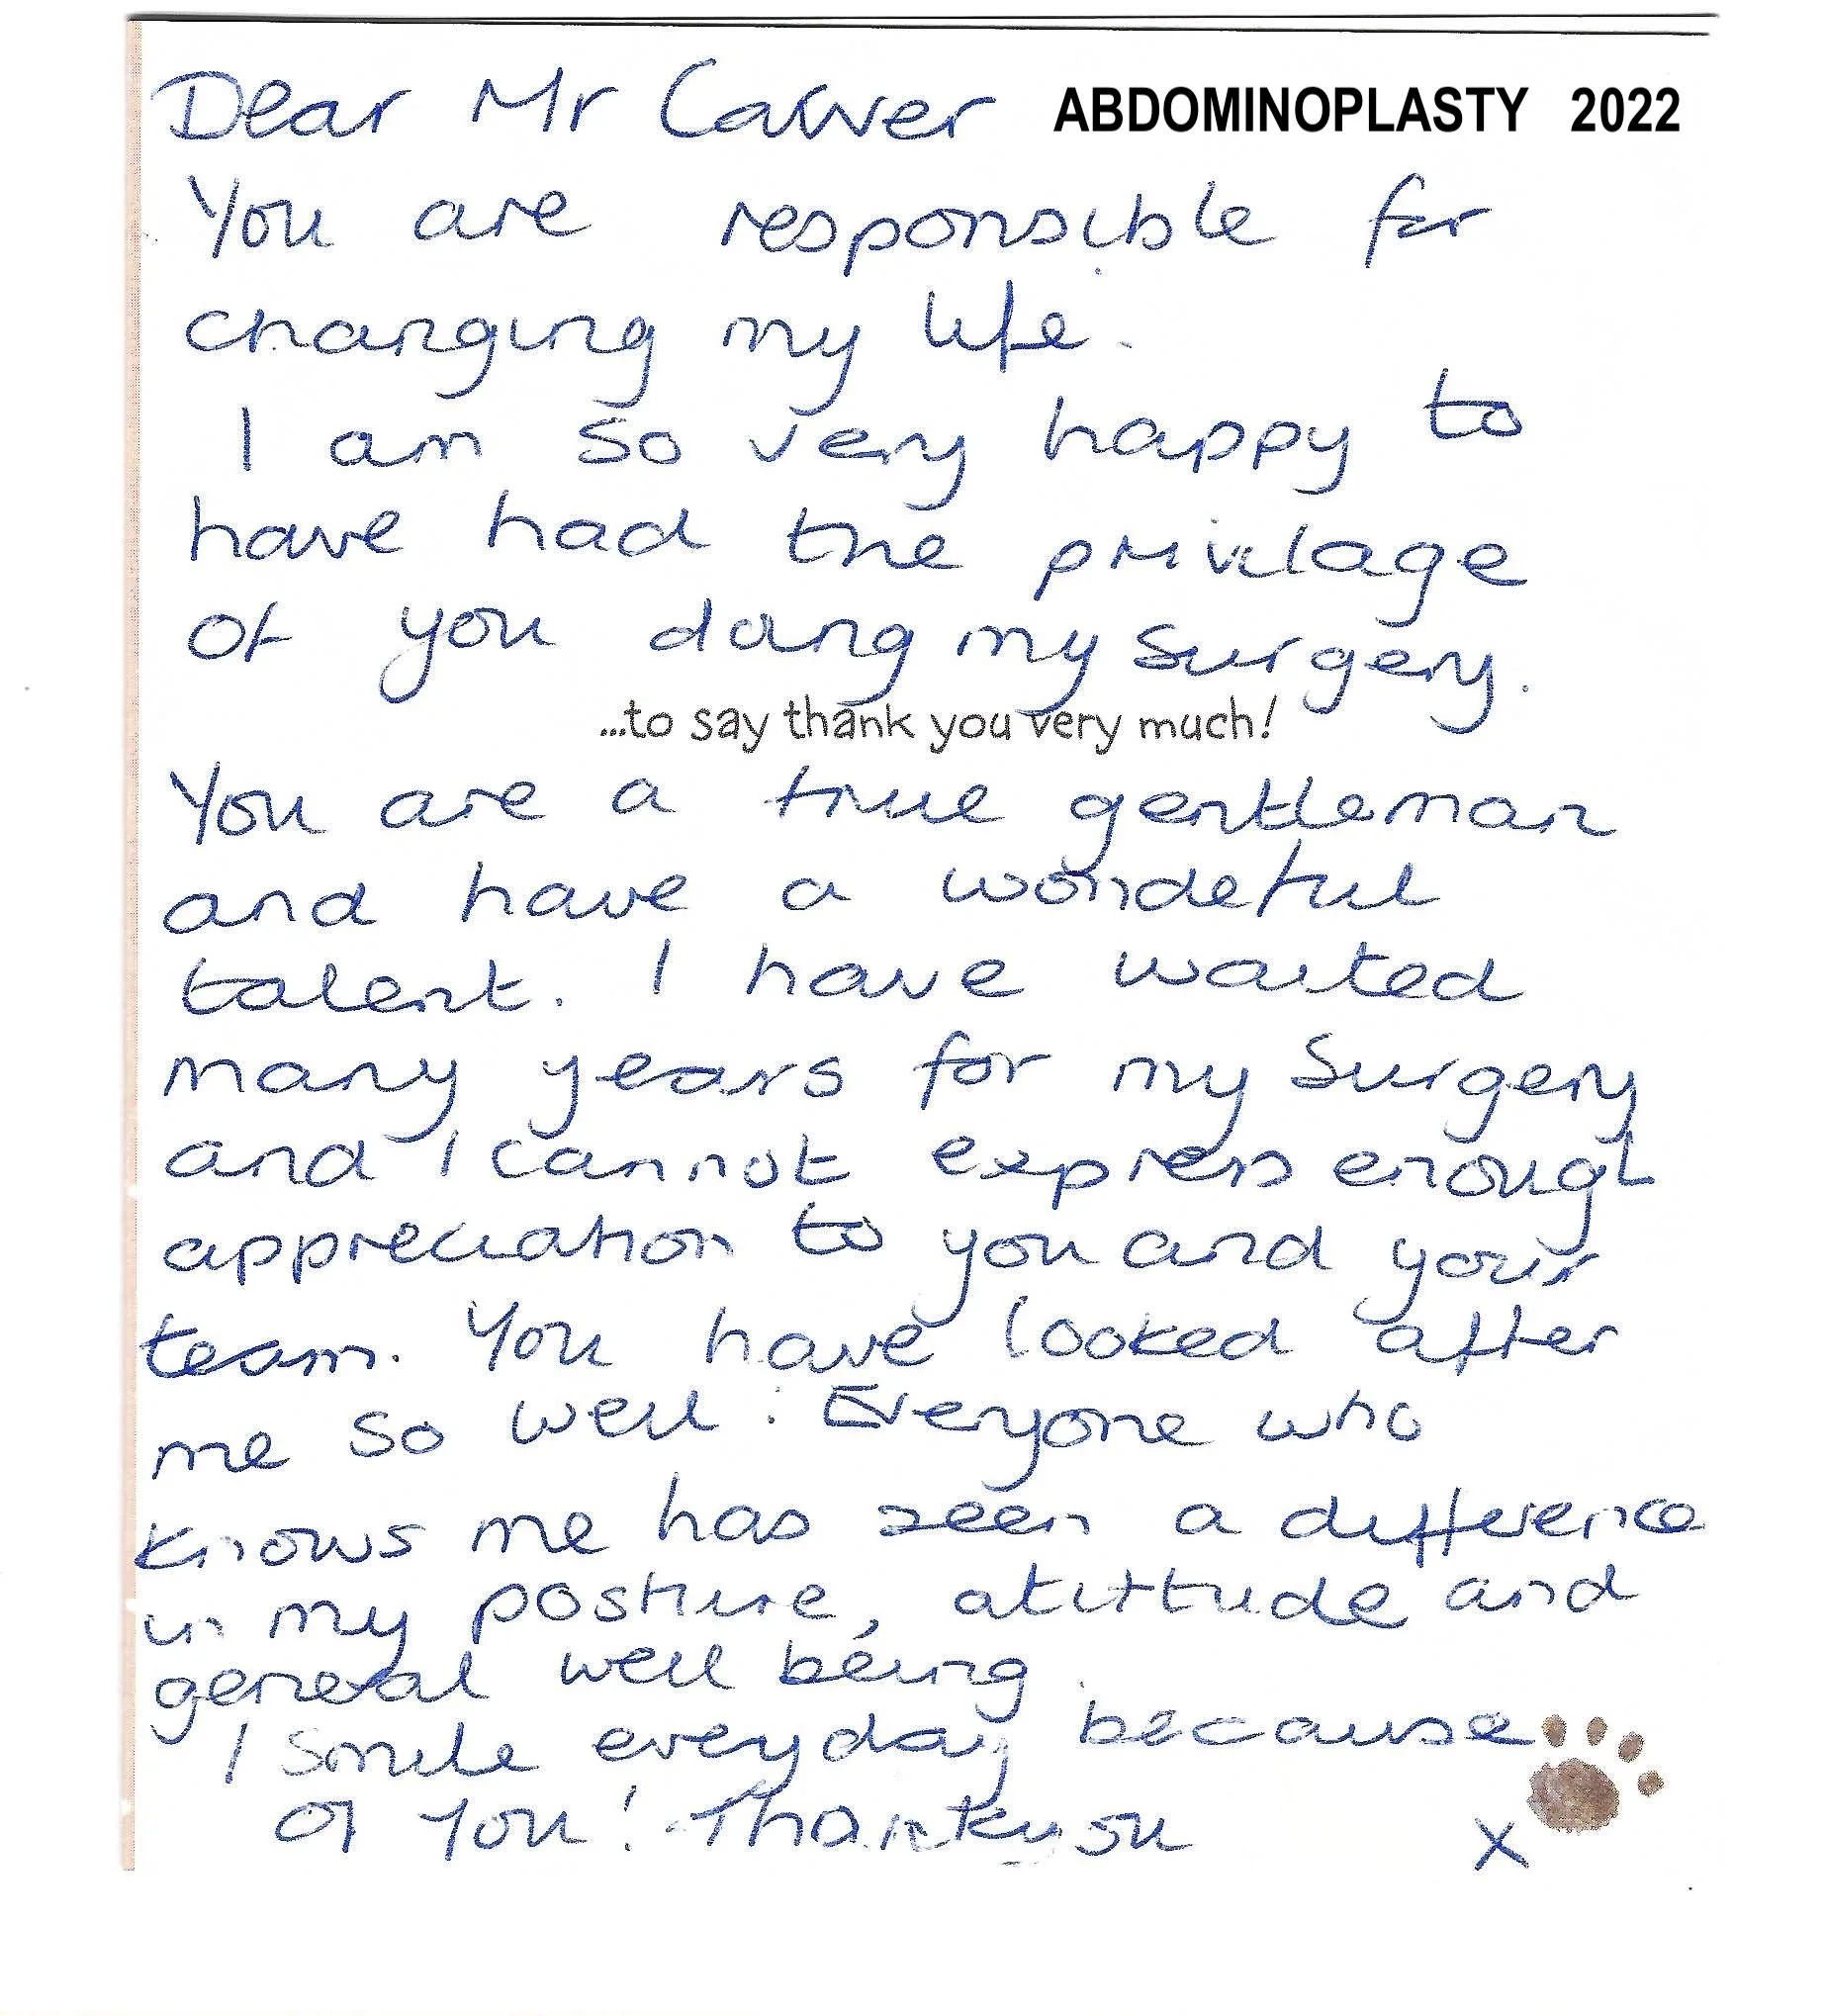 Dear Mr Calver ABDOMINOPLASTY 2022
You are responsible for
changing my life.
I am so very happy to
have had the privilage
of you doing my surgery.
...to say thank you very much!
You are a true gentleman
and have a wondeful
talent. I have waited
many years for my surgery
and I cannot express enough
appreciation to you and your
team. You have looked after
me so well! Everyone who
knows me has seen a difference
in my posture, atittude and
general well being.
I smile everyday because
of you! Thankyou x